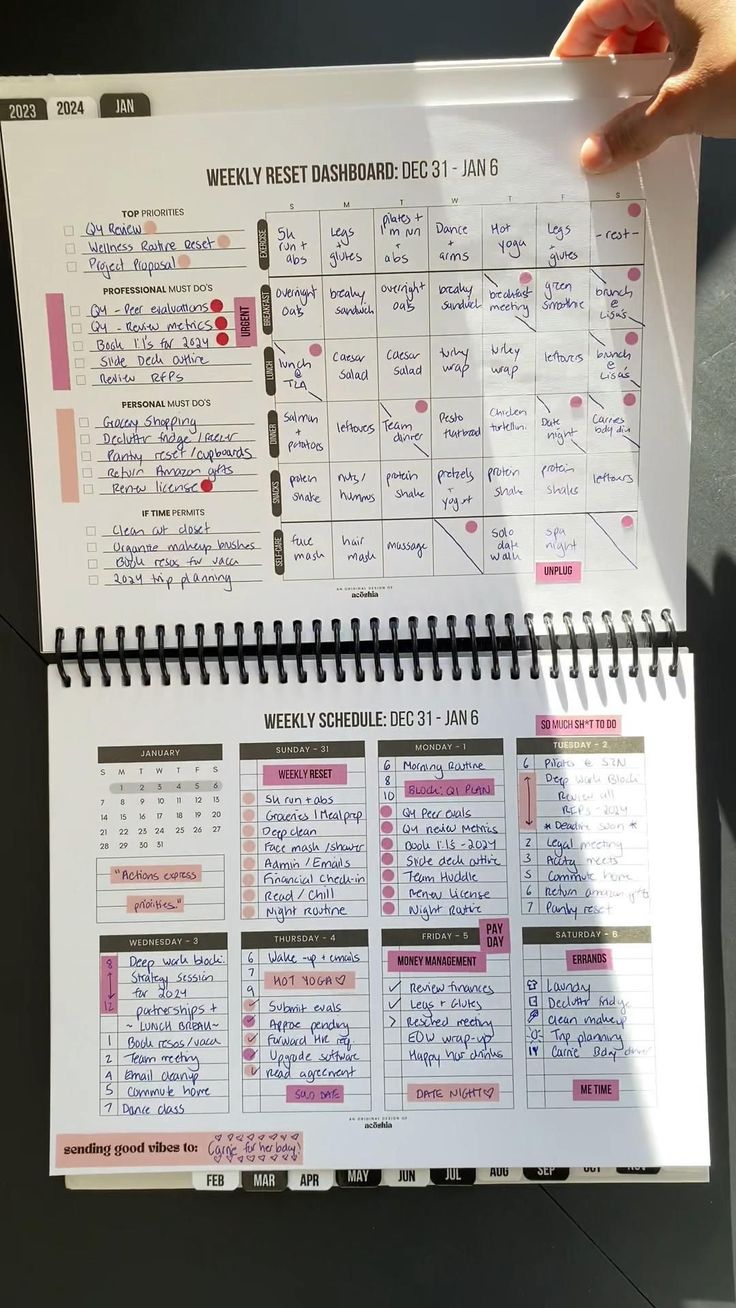 2023 2024 JAN
WEEKLY RESET DASHBOARD: DEC 31 - JAN 6
TOP PRIORITIES
Q4 Review
Wellness Routine Reset
Project Proposal
PROFESSIONAL MUST DO'S
Q4 - Peer evaluations
Q4 - Review metrics
Book 1:1's for 2024
Slide Deck outline
Review RFPs
URGENT
PERSONAL MUST DO'S
Grocery Shopping
Declutter fridge / freezer
Pantry reset / cupboards
Return Amazon gifts
Renew license
IF TIME PERMITS
Clean out closet
Organize makeup brushes
Book resos for vaca
2024 trip planning
S M T W T F S
EXERCISE
5k run + abs
Legs + glutes
pilates + 1m run + abs
Dance + arms
Hot yoga
Legs + glutes
- rest -
BREAKFAST
overnight oats
breaky sandwich
overnight oats
breaky sandwich
breakfast meeting
green smoothie
brunch @ Lisa's
LUNCH
lunch @
caesar salad
caesar salad
turkey wrap
turkey wrap
leftovers
brunch @ Lisa's
DINNER
Salmon + potatoes
leftovers
Team dinner
Pesto flatbread
Chicken tortellini
Date night
Carries bday din
SNACKS
protein shake
nuts / hummus
protein shake
pretzels + yogurt
protein shake
protein shake
leftovers
SELF-CARE
face mask
hair mask
massage
Solo date walk
spa night
UNPLUG
AN ORIGINAL DESIGN OF
acōshia
WEEKLY SCHEDULE: DEC 31 - JAN 6
SO MUCH SH*T TO DO
JANUARY
S M T W T F S
1 2 3 4 5 6
7 8 9 10 11 12 13
14 15 16 17 18 19 20
21 22 23 24 25 26 27
28 29 30 31
"Actions express
priorities."
SUNDAY - 31
WEEKLY RESET
5k run + abs
Groceries / Meal prep
Deep clean
Face mask / shower
Admin / Emails
Financial Check-in
Read / Chill
Night Routine
MONDAY - 1
6 Morning Routine
8 BLOCK: Q1 PLAN
10
Q4 Peer evals
Q4 Review Metrics
Book 1:1's - 2024
Slide deck outline
Team Huddle
Renew License
Night Routine
TUESDAY - 2
6 Pilates @
Deep Work Block:
Review all
RFPs - 2024
* Deadline soon *
2 Legal meeting
3 meets
5 Commute home
6 Return amazon gifts
7 Pantry reset
WEDNESDAY - 3
8 Deep work block:
Strategy session
for 2024
12 partnerships +
~ LUNCH BREAK ~
1 Book resos / vaca
2 Team meeting
4 Email cleanup
5 Commute home
7 Dance class
THURSDAY - 4
6 Wake-up + emails
7
HOT YOGA ♡
9
Submit evals
Approve pending
Forward HR req.
Upgrade software
Read agreement
SOLO DATE
FRIDAY - 5
PAY DAY
MONEY MANAGEMENT
✓ Review finances
✓ Legs + Glutes
> Resched meeting
EOW wrap-up
Happy hour drinks
DATE NIGHT ♡
SATURDAY - 6
ERRANDS
Laundry
Declutter fridge
Clean makeup
Trip planning
Carrie Bday dinner
ME TIME
AN ORIGINAL DESIGN OF
acōshia
sending good vibes to: Carrie for her bday!
FEB MAR APR MAY JUN JUL AUG SEP OCT NOV